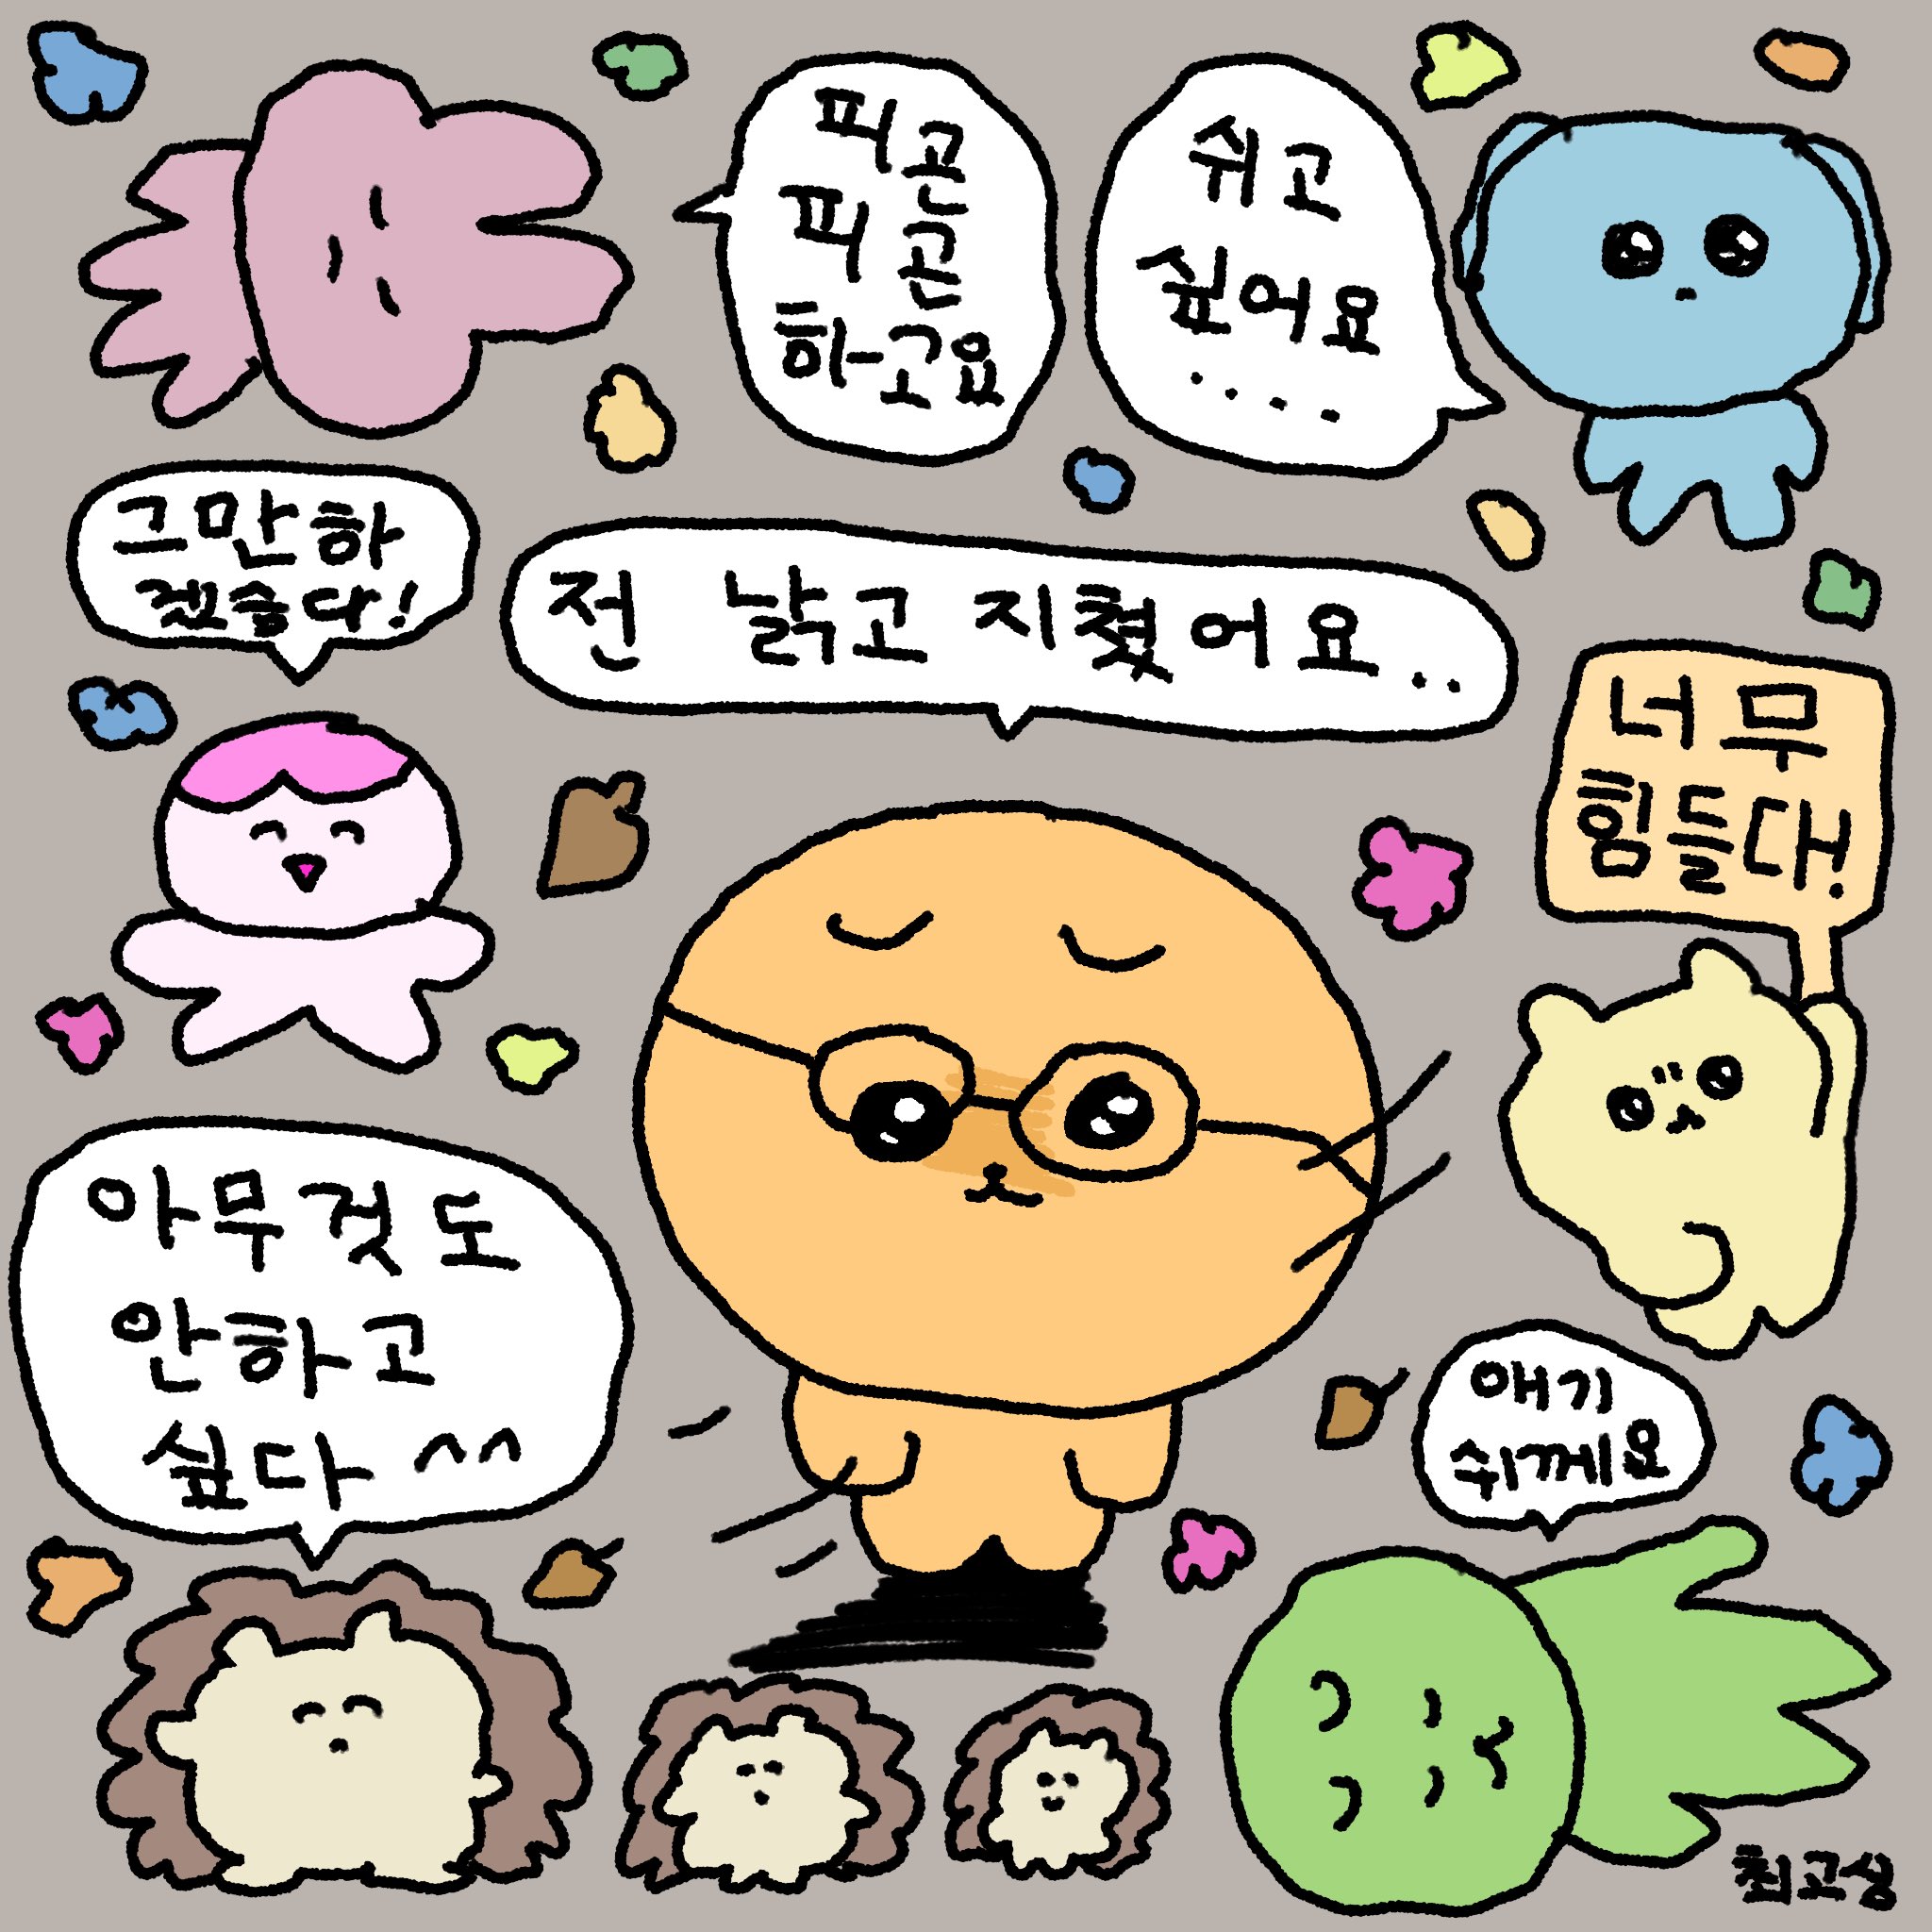 피곤
피곤
하고요
쉬고
싶어요
....
그만하
겠슴다!
전 낡고 지쳤어요..
너무
힘들다!
아무것도
안하고
싶다^^
애기
쉬께요
최고심